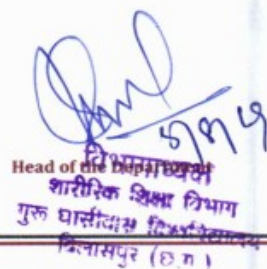 Head of the Department
विभागाध्यक्ष
शारीरिक शिक्षा विभाग
गुरू घासीदास विश्वविद्यालय
बिलासपुर (छ.ग.)